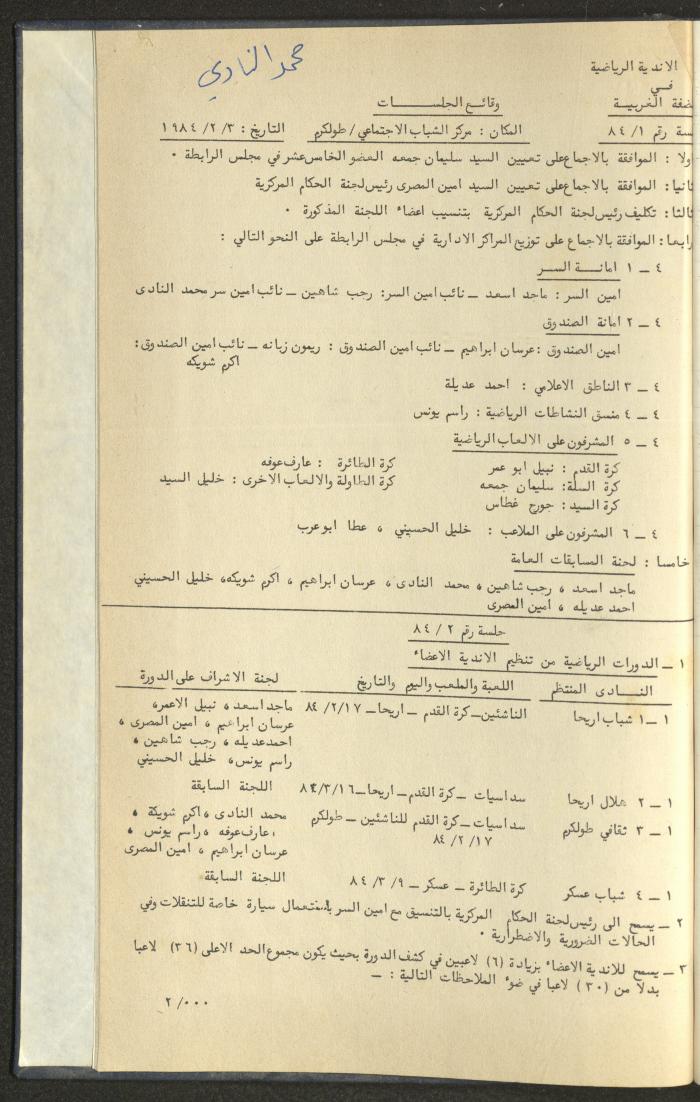 محمد النادي
الاندية الرياضية
في
ضفة الغربية
وقائع الجلسات
سة رقم ٨٤/١ المكان : مركز الشباب الاجتماعي / طولكرم التاريخ : ١٩٨٤/٢/٣
ولا : الموافقة بالاجماع على تعيين السيد سليمان جمعه العضو الخامس عشر في مجلس الرابطة ٠
ثانيا: الموافقة بالاجماع على تعيين السيد امين المصرى رئيس لجنة الحكام المركزية
ثالثا: تكليف رئيس لجنة الحكام المركزية بتنسيب اعضاء اللجنة المذكورة ٠
رابعا: الموافقة بالاجماع على توزيع المراكز الادارية في مجلس الرابطة على النحو التالي :
٤ ــ ١ امانة السر
امين السر : ماجد اسعد ــ نائب امين السر: رجب شاهين ــ نائب امين سر محمد النادى
٤ ــ ٢ امانة الصندوق
امين الصندوق :عرسان ابراهيم ــ نائب امين الصندوق : ريمون زبانه ــ نائب امين الصندوق:
اكرم شويكه
٤ ــ ٣ الناطق الاعلامي : احمد عديلة
٤ ــ ٤ منسق النشاطات الرياضية : راسم يونس
٤ ــ ٥ المشرفون على الالعاب الرياضية
كرة القدم : نبيل ابو عمر كرة الطائرة : عارف عوفه
كرة السلة: سليمان جمعه كرة الطاولة والالعاب الاخرى : خليل السيد
كرة السيد : جورج غطاس
٤ ــ ٦ المشرفون على الملاعب : خليل الحسيني ، عطا ابو عرب
خامسا : لجنة المسابقات العامة
ماجد اسعد ، رجب شاهين ، محمد النادى ، عرسان ابراهيم ، اكرم شويكه، خليل الحسيني
احمد عديله ، امين المصرى
جلسة رقم ٨٤/٢
١ ــ الدورات الرياضية من تنظيم الاندية الاعضاء
النادى المنتظم اللعبة والملعب واليوم والتاريخ لجنة الاشراف على الدورة
١ ــ ١ شباب اريحا الناشئين ــ كرة القدم ــ اريحا ــ ٨٤/٢/١٧ ماجد اسعد ، نبيل الاعمر،
عرسان ابراهيم ، امين المصرى ،
احمد عديله ، رجب شاهين ،
راسم يونس، خليل الحسيني
١ ــ ٢ هلال اريحا سداسيات ــ كرة القدم ــ اريحا ــ ٨٤/٣/١٦ اللجنة السابقة
١ ــ ٣ ثقافي طولكرم سداسيات ــ كرة القدم للناشئين ــ طولكرم محمد النادى ، اكرم شويكة ،
٨٤/٢/١٧ عارف عوفه ، راسم يونس ،
عرسان ابراهيم ، امين المصرى
١ ــ ٤ شباب عسكر كرة الطائرة ــ عسكر ــ ٨٤/٣/٩ اللجنة السابقة
٢ ــ يسمح الى رئيس لجنة الحكام المركزية بالتنسيق مع امين السر باستعمال سيارة خاصة للتنقلات وفي
الحالات الضرورية والاضطرارية ٠
٣ ــ يسمح للاندية الاعضاء بزيادة (٦) لاعبين في كشف الدورة بحيث يكون مجموع الحد الاعلى (٣٦) لاعبا
بدلا من (٣٠) لاعبا في ضوء الملاحظات التالية : ــ
٢/٠٠٠